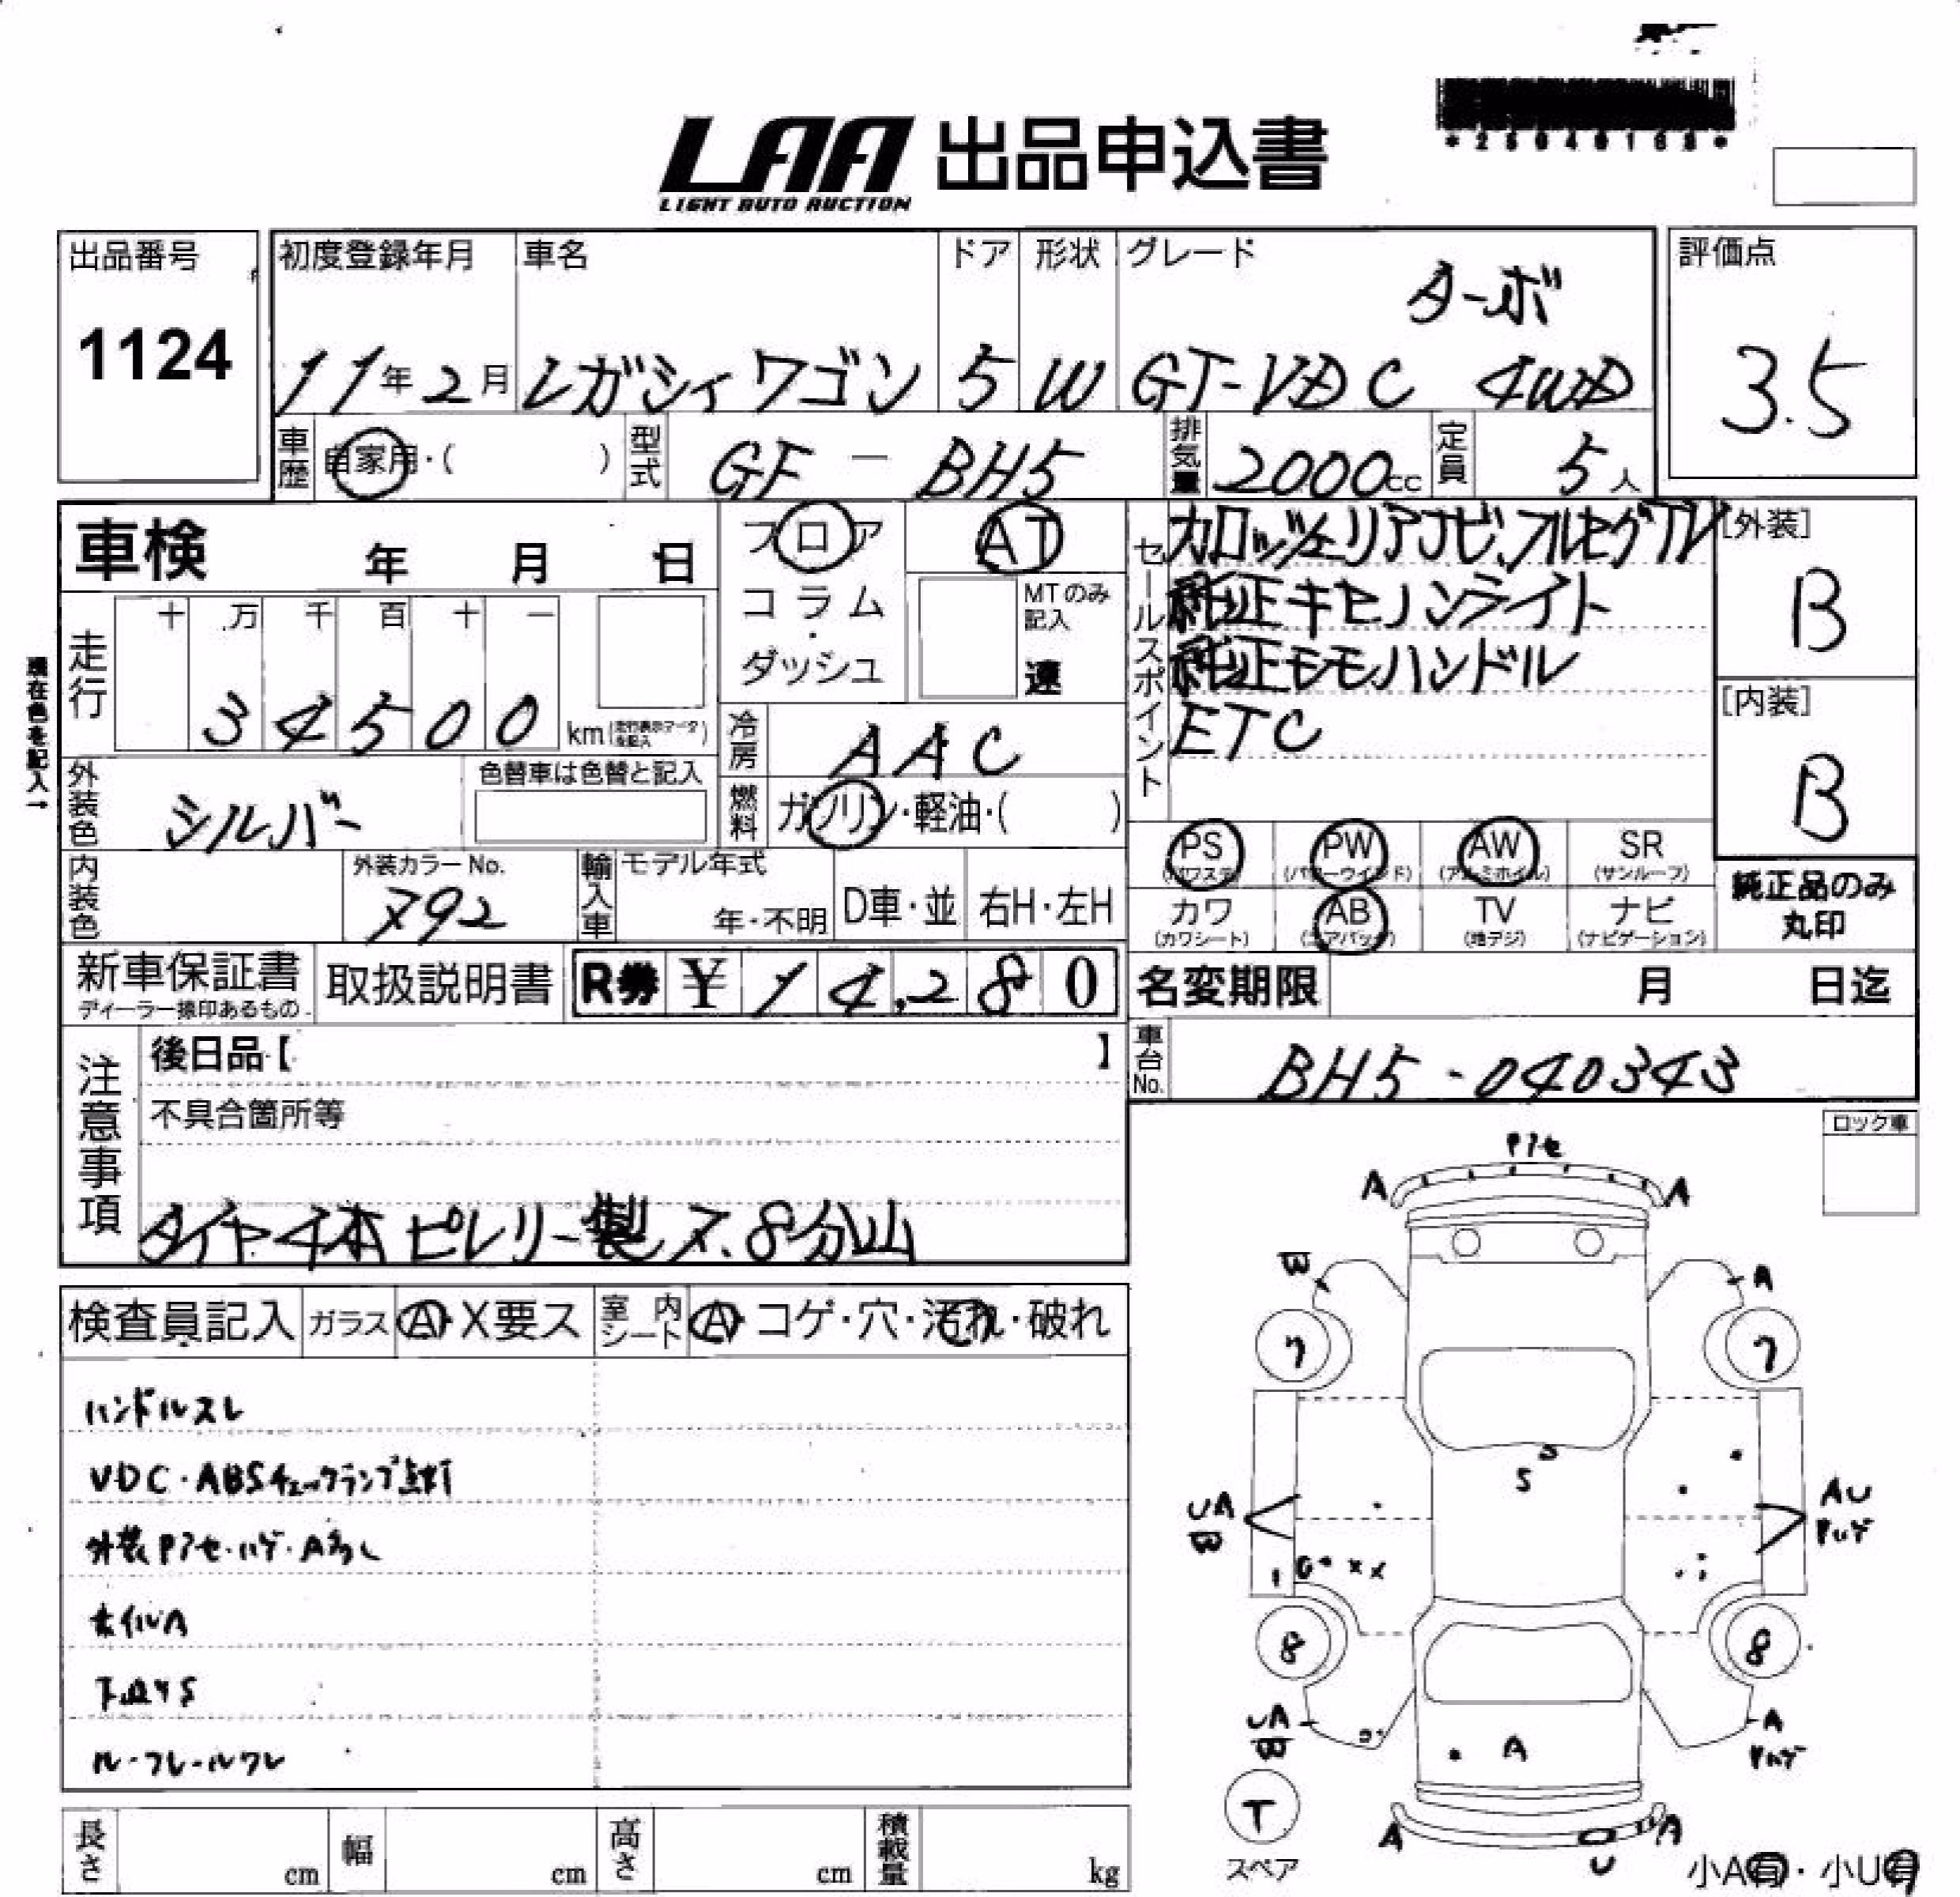 LAA 出品申込書
LIGHT AUTO AUCTION
出品番号
1124
初度登録年月
11年2月
車名
レガシィワゴン
ドア
5
形状
W
グレード
ターボ
GT-VDC 4WD
評価点
3.5
車歴
自家用・( )
型式
GF-BH5
排気量
2000cc
定員
5人
車検 年 月 日
フロア
コラム
・
ダッシュ
AT
MTのみ
記入
速
セールスポイント
カロッツェリアナビ、フルセグTV
純正キセノンライト
純正モモハンドル
ETC
[外装]
B
[内装]
B
現在色を記入→
走行
十 万 千 百 十 一
34500
km
冷房
AAC
外装色
シルバー
色替車は色替と記入
燃料
ガソリン・軽油・( )
内装色
外装カラーNo.
792
輸入車
モデル年式
年・不明
D車・並
右H・左H
PS PW AW SR
(パワステ) (パワーウインド) (アルミホイル) (サンルーフ)
カワ AB TV ナビ
(カワシート) (エアバッグ) (地デジ) (ナビゲーション)
純正品のみ
丸印
新車保証書
取扱説明書
R券 ¥ 14,280
名変期限 月 日迄
車台No.
BH5-040343
注意事項
後日品【 】
不具合箇所等
タイヤ4本ピレリー製7.8分山
ロック車
検査員記入
ガラス
A・X要ス
室内シート
A・コゲ・穴・汚れ・破れ
ハンドルスレ
VDC・ABSチェックランプ点灯
外装Pアセ・ハゲ・A多し
ホイルA
下回りS
ルーフレールワレ
Pアセ
A A
B A
7 7
S
S
UA
B
AU
Pハゲ
8 8
UA
B
A
Pハゲ
A
T
スペア
A A
U
小A有・小U有
長さ cm
幅 cm
高さ cm
積載量 kg